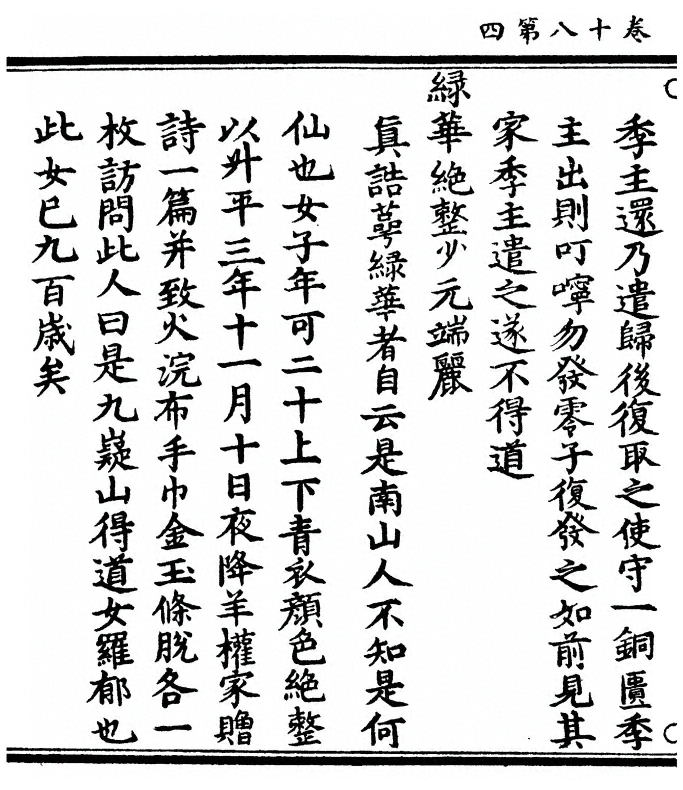 卷十八第四
季主還乃遣歸後復取之使守一銅匱季
主出則叮嚀勿發零子復發之如前見其
家季主遣之遂不得道
緑華絶整少元端麗
真誥萼緑華者自云是南山人不知是何
仙也女子年可二十上下青衣顔色絶整
以升平三年十一月十日夜降羊權家贈
詩一篇并致火浣布手巾金玉條脫各一
枚訪問此人曰是九嶷山得道女羅郁也
此女已九百歳矣